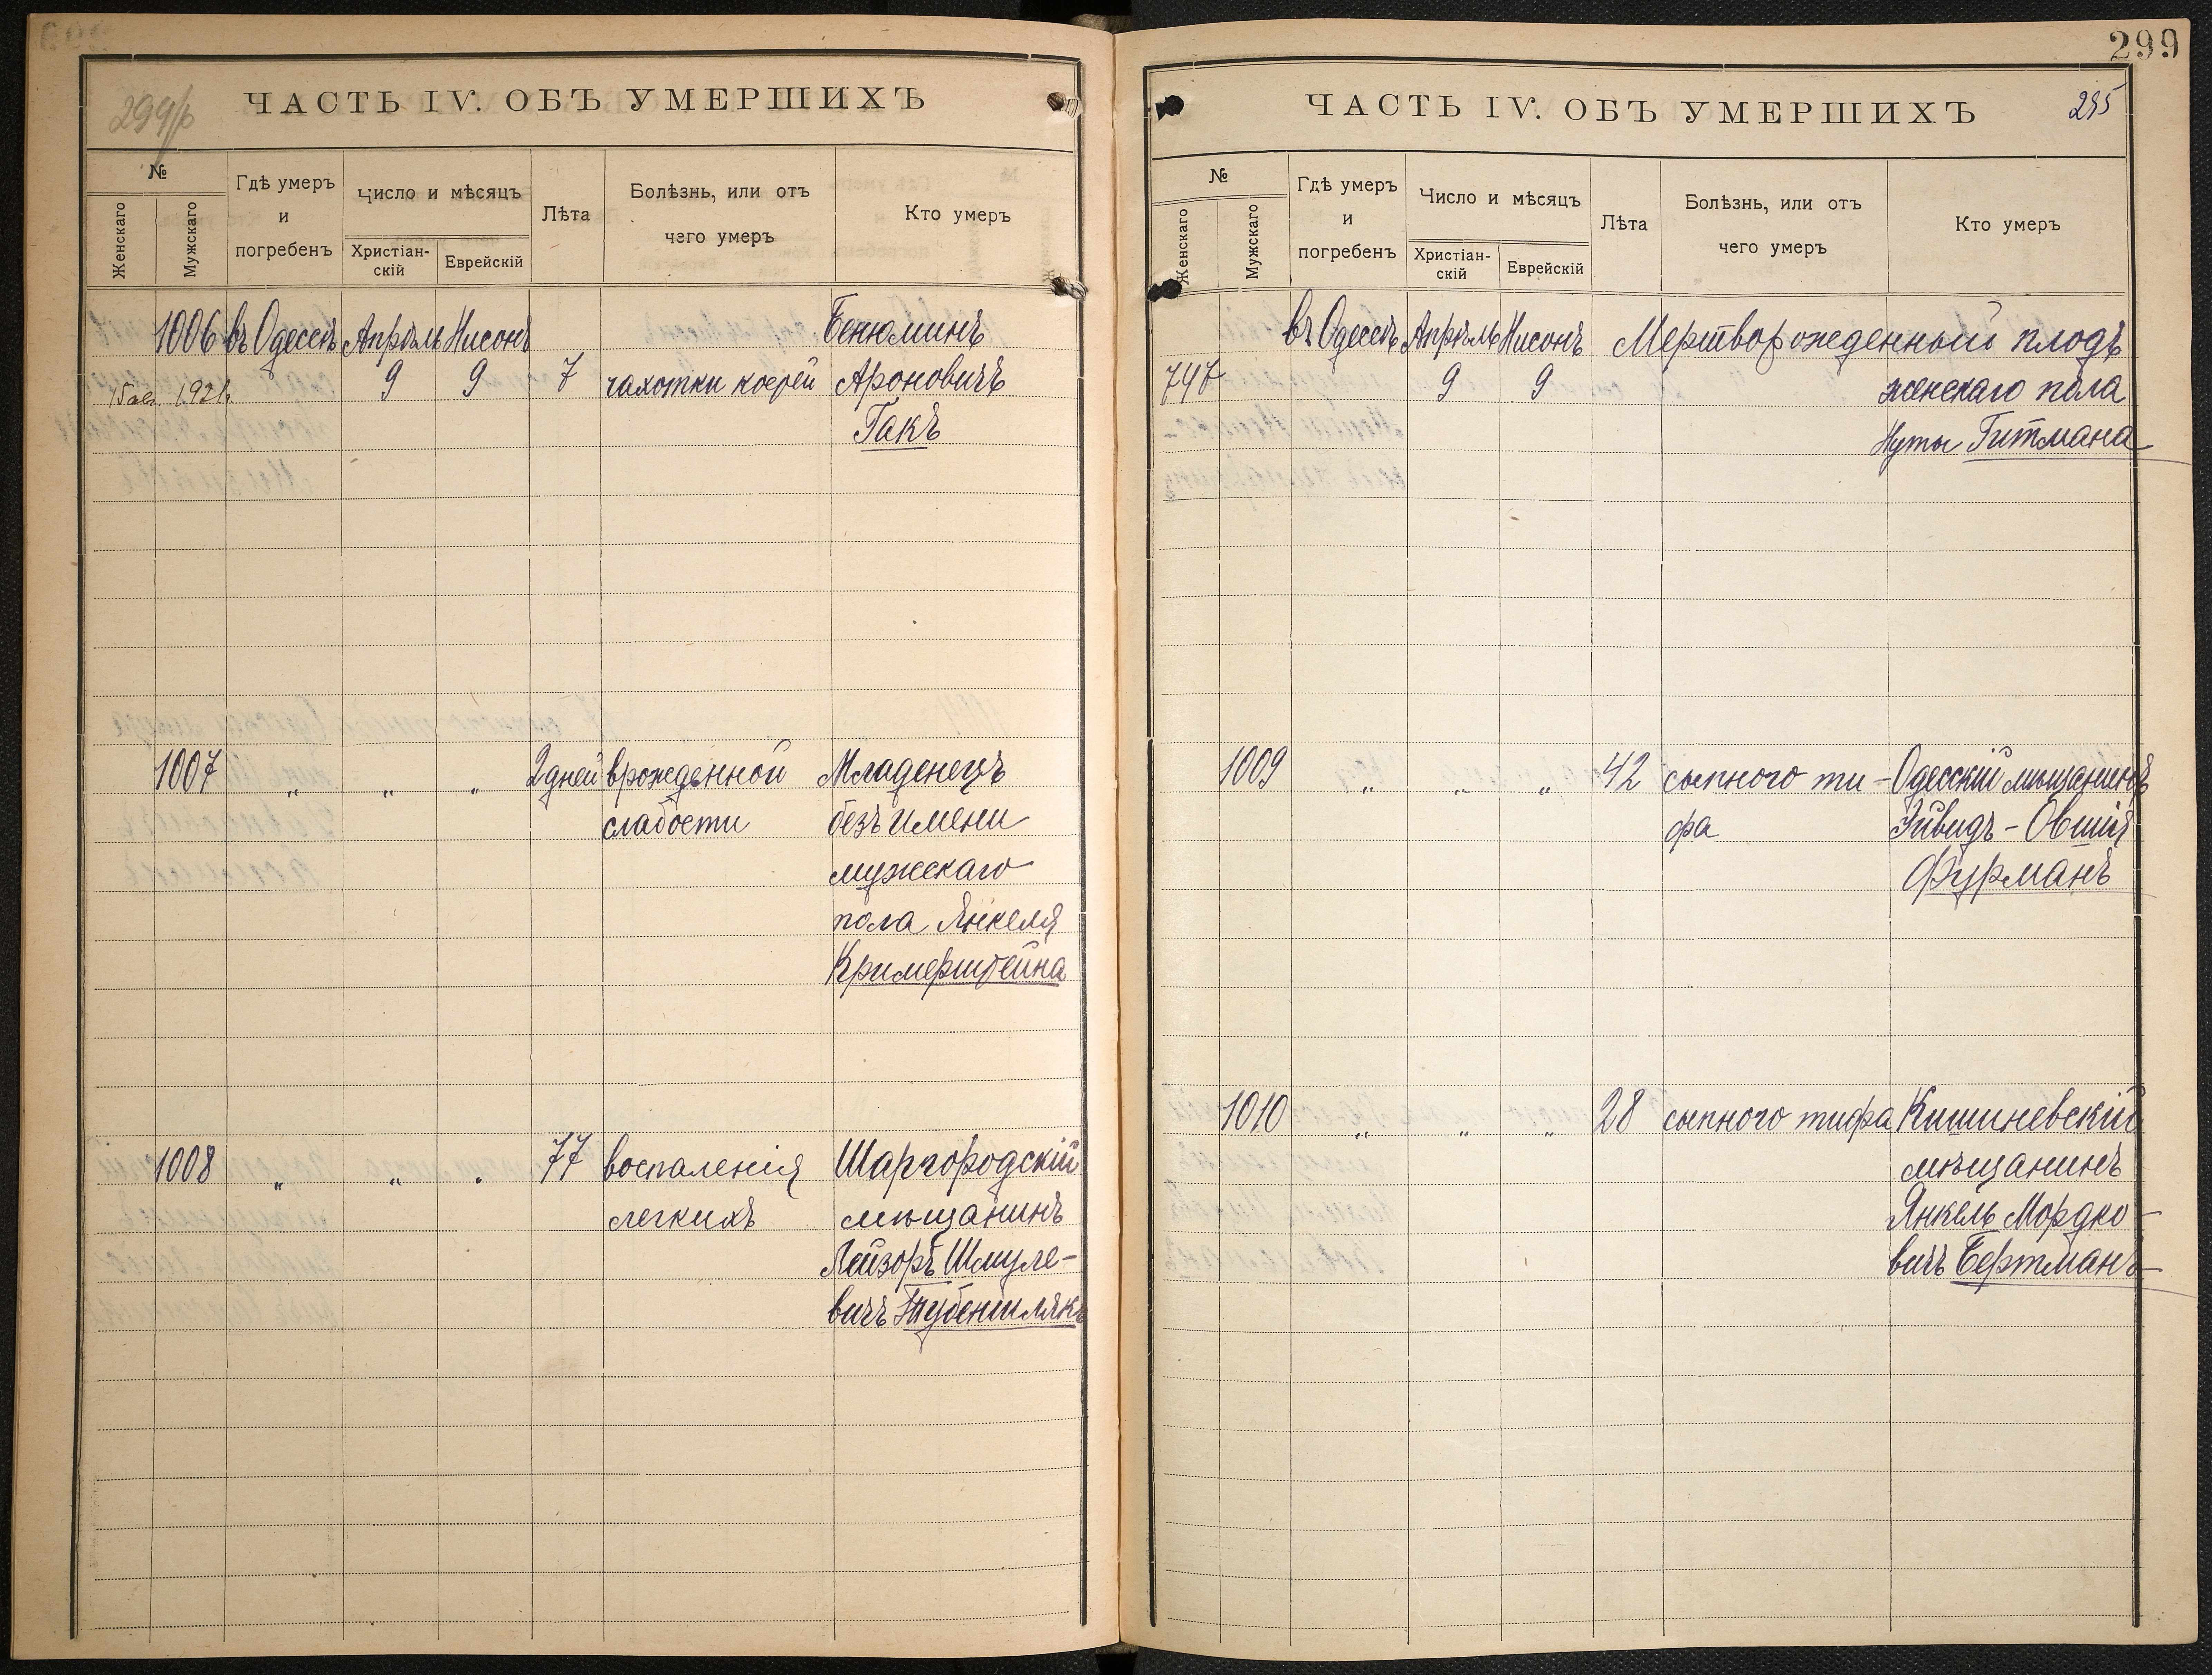 ЧАСТЬ IV. ОБЪ УМЕРШИХЪ
№
Женскаго
Мужскаго
Гдѣ умеръ
и
погребенъ
Число и мѣсяцъ
Христіан-
скій
Еврейскій
Лѣта
Болѣзнь, или отъ
чего умеръ
Кто умеръ
1006 въ Одессѣ Апрѣль Нисонъ Бенюминъ
1921. 9 9 7 чахотки костей Ароновичъ
Гакъ
1007 " " " 2 дней врожденной Младенецъ
слабости безъ имени
мужескаго
пола Янкеля
Кримерштейна
1008 " " " 77 воспаленія Шаргородскій
легкихъ мѣщанинъ
Лейзоръ Шмуле-
вичъ
299
ЧАСТЬ IV. ОБЪ УМЕРШИХЪ
295
№
Женскаго
Мужскаго
Гдѣ умеръ
и
погребенъ
Число и мѣсяцъ
Христіан-
скій
Еврейскій
Лѣта
Болѣзнь, или отъ
чего умеръ
Кто умеръ
въ Одессѣ Апрѣль Нисонъ Мертворожденный плодъ
747 9 9 женскаго пола
Нуты Гитмана
1009 " " " 42 сыпного ти- Одесскій мѣщанинъ
фа Овшія
Фурманъ
1010 " " " 28 сыпного тифа Кишиневскій
мѣщанинъ
Янкель Мордко-
вичъ Бертманъ